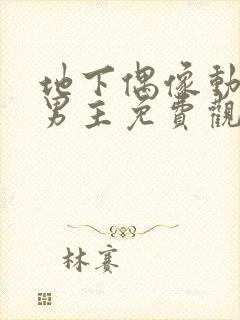 地下偶像動
男主免費觀
林賽